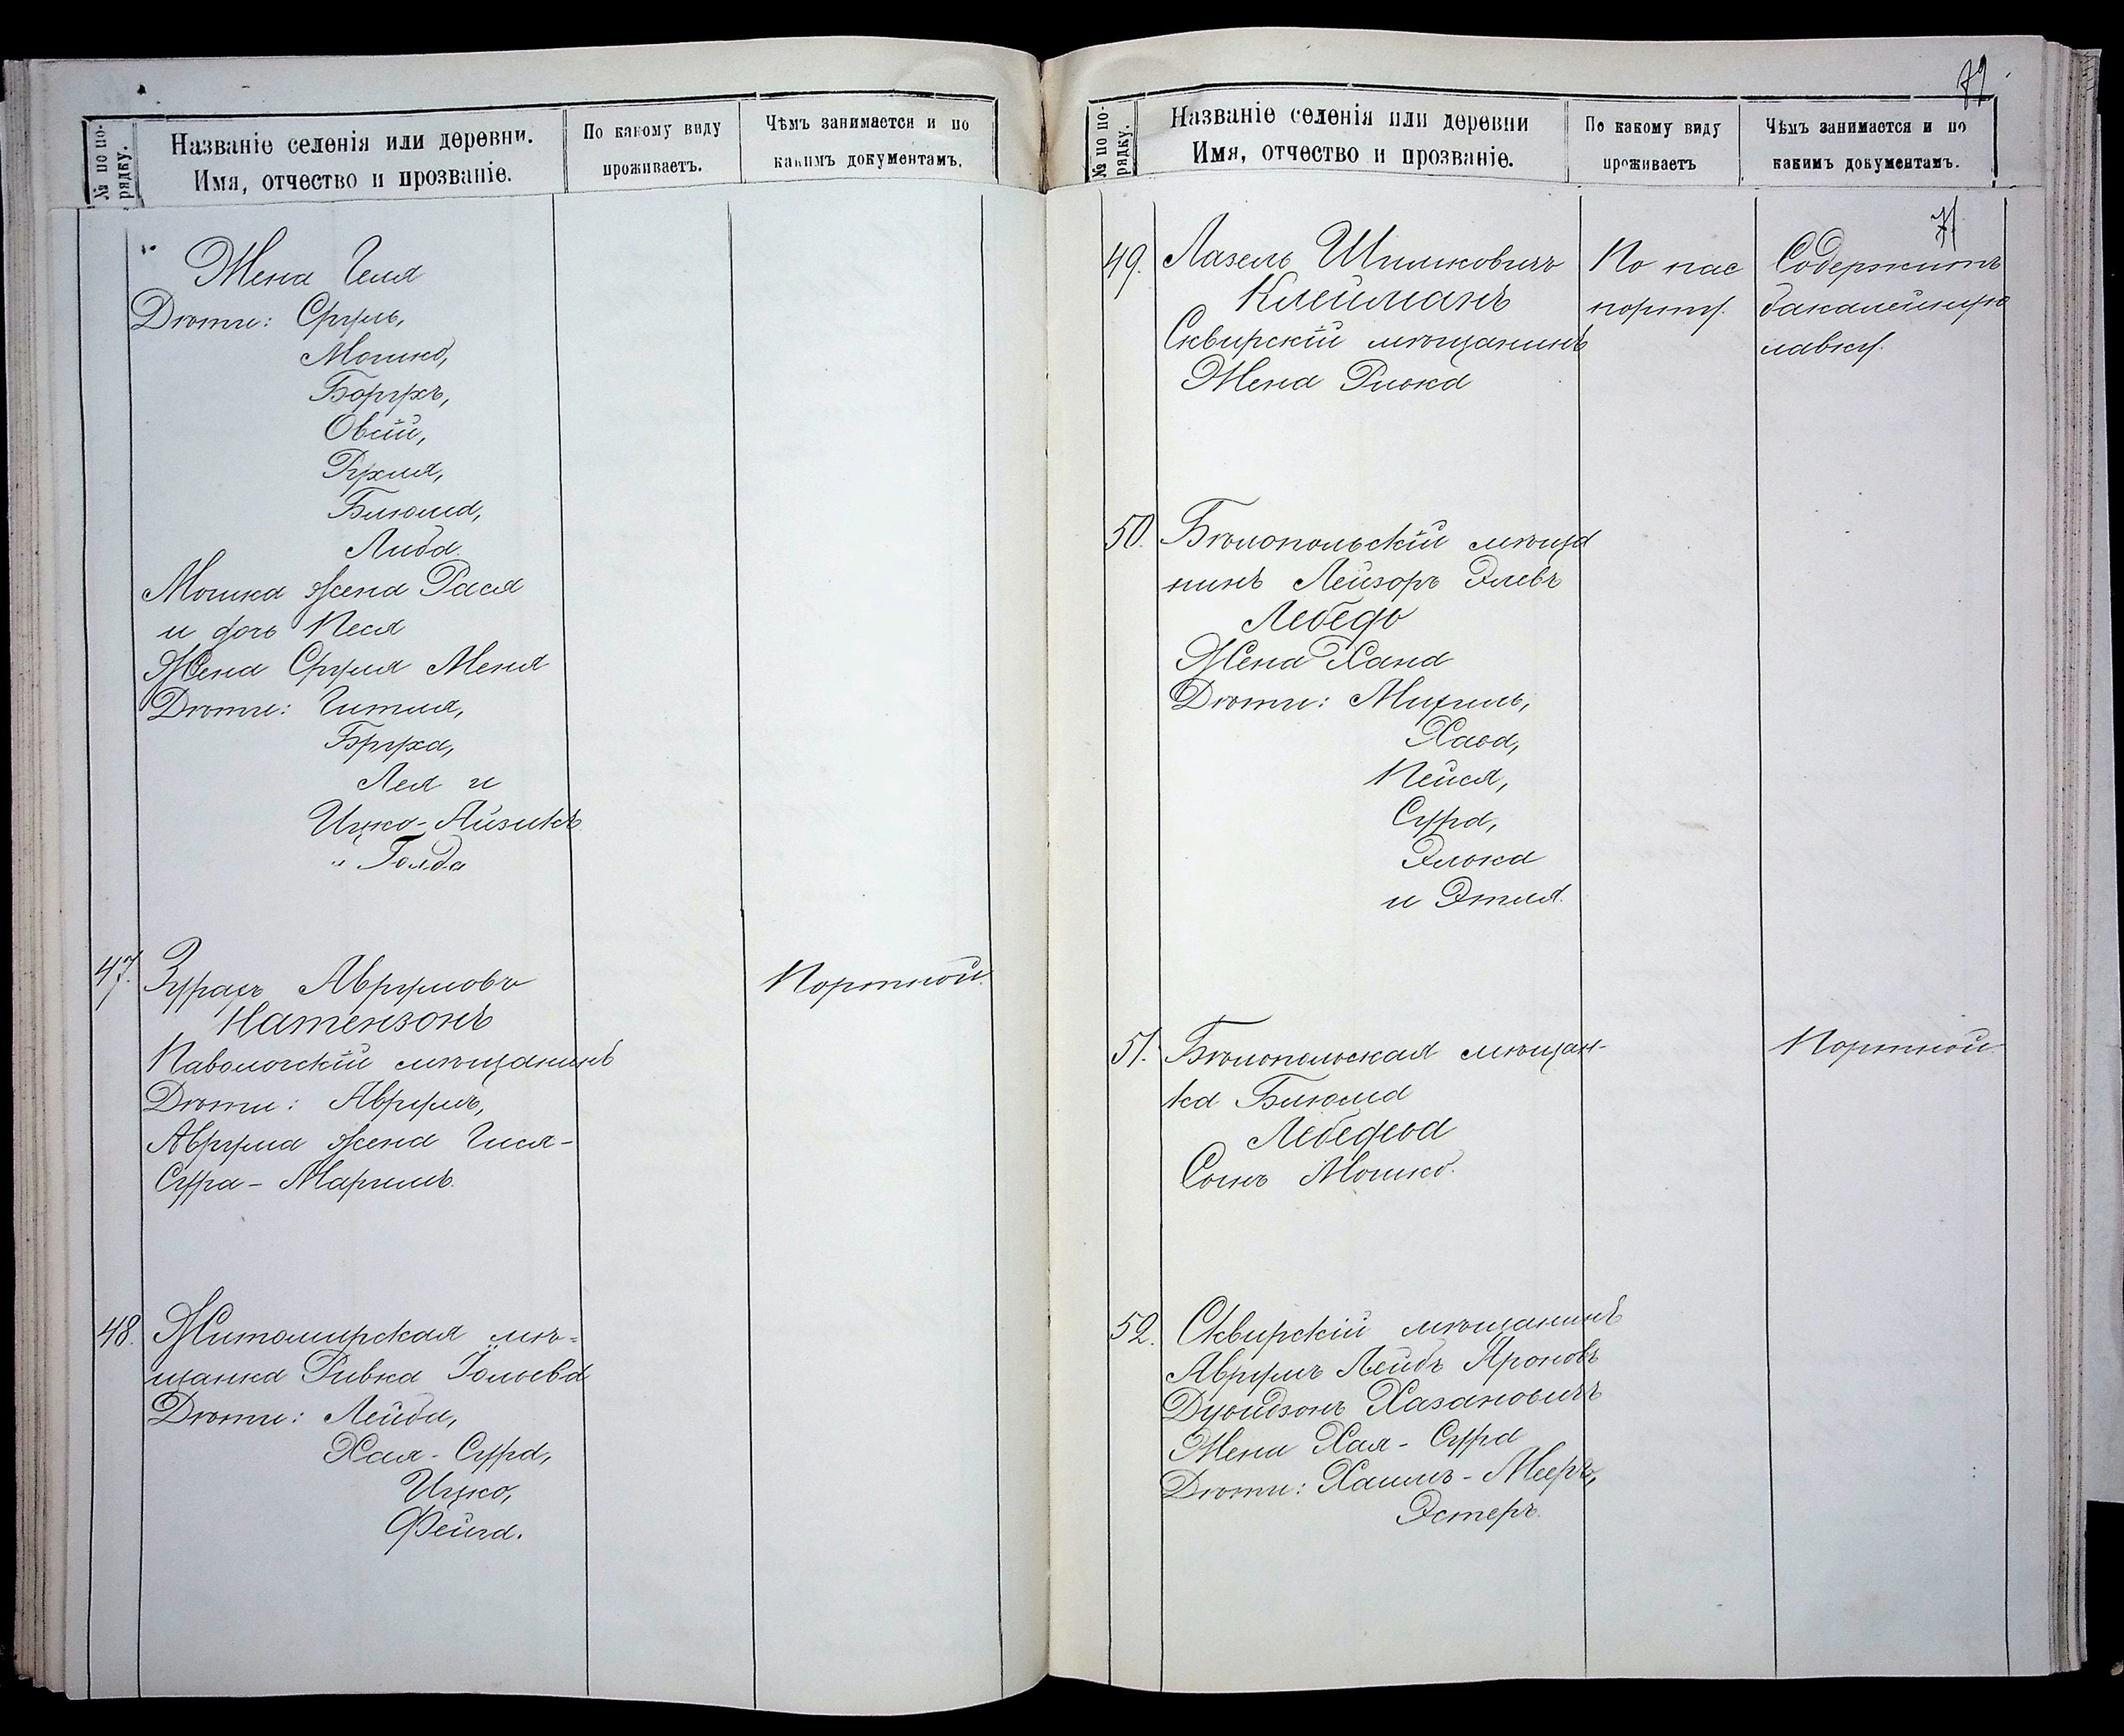 № по по-
рядку.
Названіе селенія или деревни.
Имя, отчество и прозваніе.
По какому виду
проживаетъ.
Чѣмъ занимается и по
какимъ документамъ.
Жена Геля
Дѣти: Сруль,
Мошко,
Борухъ,
Овсій,
Рухля,
Блюма,
Либа.
Мошка жена Рася
и дочь Песя
Жена Сруля Меня
Дѣти: Гитля,
Бруха,
Лея и
Ицко-Айзикъ
" Голда
47.
Аврумовъ
Натензонъ
Паволочскій мѣщанинъ
Дѣти: Аврумъ,
Аврума жена Гися-
Сура-
Портной.
48.
Житомирская мѣ=
щанка Ривка
Дѣти: Лейба,
Хая-Сура,
Ицко,
Фейга.
72
№ по по-
рядку.
Названіе селенія или деревни
Имя, отчество и прозваніе.
По какому виду
проживаетъ
Чѣмъ занимается и по
какимъ документамъ.
71
49.
Лазель Шмилковичъ
Клейманъ
Сквирскій мѣщанинъ
Жена
По пас
порту.
Содержитъ
бакалейную
лавку.
50.
Бѣлопольскій мѣща
нинъ Лейзоръ Элевъ
Лебедь
Жена Хана
Дѣти:
Хава,
Пейся,
Сура,
Элька
и Этля.
51.
Бѣлопольская мѣщан-
ка Блюма
Лебедева
Сынъ Мошко.
Портной
52.
Сквирскій мѣщанинъ
Аврумъ Лейбъ Ароновъ
Дувидзонъ Хазановичъ
Жена Хая-Сура
Дѣти: Хаимъ-Мееръ,
Эстеръ.